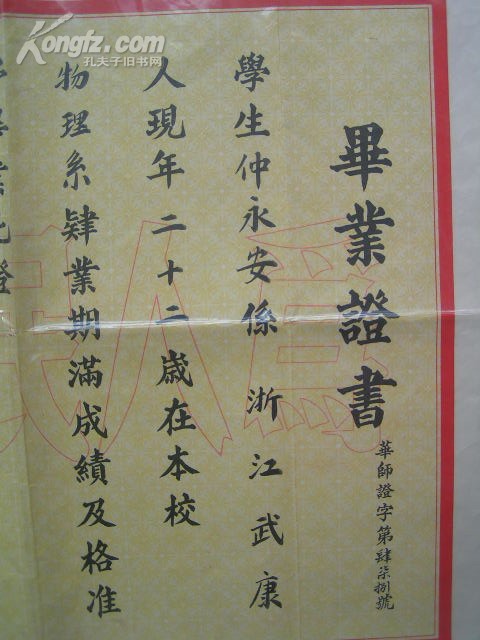 畢業證書
華師證字第肆柒捌號
學生仲永安係浙江武康
人現年二十二歲在本校
物理系肄業期滿成績及格准
Kongfz.com
孔夫子旧书网